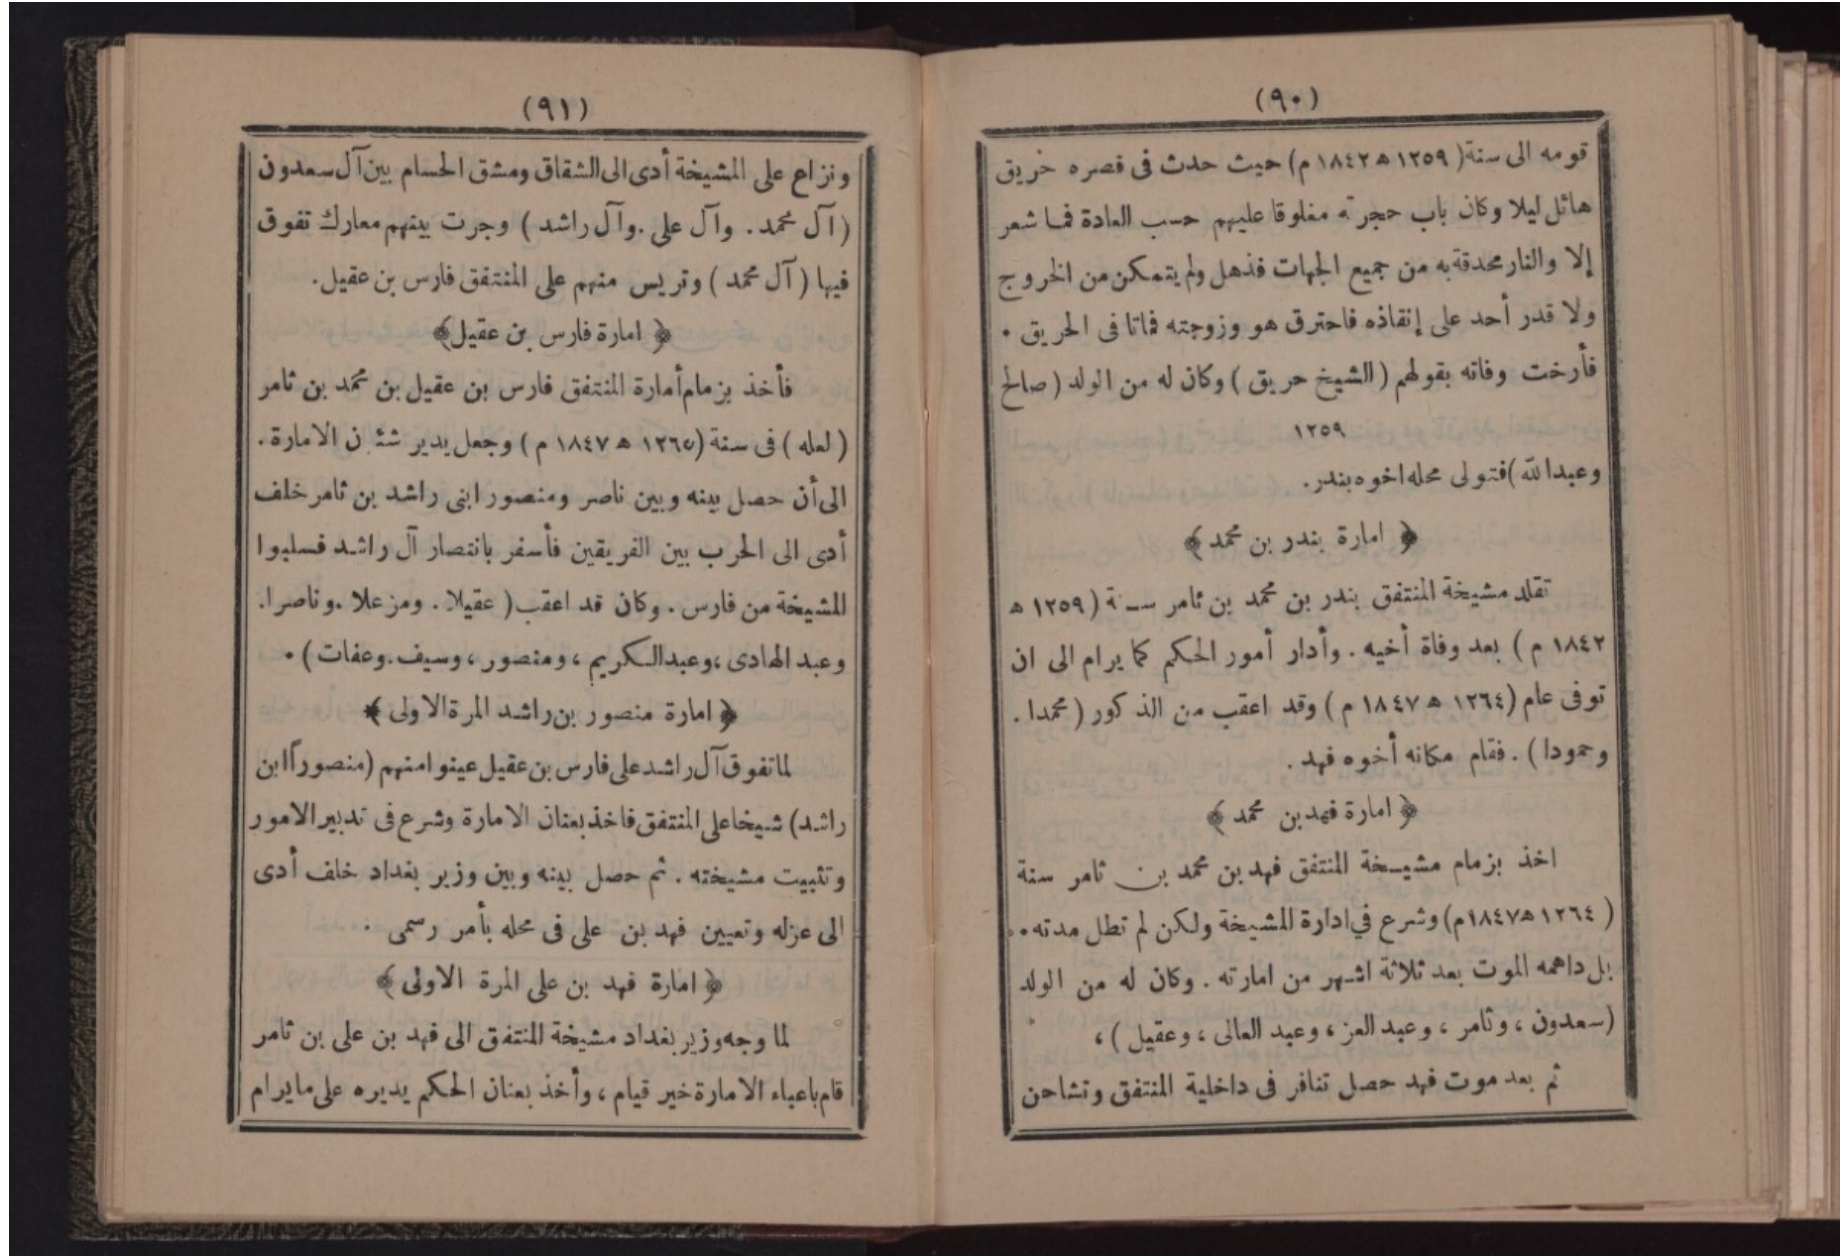 (٩٠)
قومه الى سنة (١٢٥٩ ه ١٨٤٢ م) حيث حدث فى قصره حريق
هائل ليلا وكان باب حجرته مغلوقا عليهم حسب العادة فما شعر
إلا والنار محدقة به من جميع الجهات فذهل ولم يتمكن من الخروج
ولا قدر أحد على إنقاذه فاحترق هو وزوجته فماتا فى الحريق .
فأرخت وفاته بقولهم (الشيخ حريق) وكان له من الولد (صالح
١٢٥٩
وعبدالله) فتولى محله اخوه بندر.
﴿ امارة بندر بن محمد ﴾
تقلد مشيخة المنتفق بندر بن محمد بن ثامر سنة (١٢٥٩ ه
١٨٤٢ م) بعد وفاة أخيه . وأدار أمور الحكم كما يرام الى ان
توفى عام (١٢٦٤ ه ١٨٤٧ م) وقد اعقب من الذكور (محمدا .
وحمودا) . فقام مكانه أخوه فهد .
﴿ امارة فهد بن محمد ﴾
اخذ بزمام مشيخة المنتفق فهد بن محمد بن ثامر سنة
(١٢٦٤ ه ١٨٤٧م) وشرع في ادارة المشيخة ولكن لم تطل مدته ..
بل داهمه الموت بعد ثلاثة اشهر من امارته . وكان له من الولد
(سعدون ، وثامر ، وعبد العز ، وعبد العالى ، وعقيل) ،
ثم بعد موت فهد حصل تنافر فى داخلية المنتفق وتشاحن
(٩١)
ونزاع على المشيخة أدى الى الشقاق ومشق الحسام بين آل سعدون
(آل محمد . وآل على . وآل راشد) وجرت بينهم معارك تفوق
فيها (آل محمد) وتريس منهم على المنتفق فارس بن عقيل.
﴿ امارة فارس بن عقيل ﴾
فأخذ بزمام أمارة المنتفق فارس بن عقيل بن محمد بن ثامر
(لعله) فى سنة (١٢٦٥ ه ١٨٤٧ م) وجعل يدير شئون الامارة .
الى أن حصل بينه وبين ناصر ومنصور ابنى راشد بن ثامر خلف
أدى الى الحرب بين الفريقين فأسفر بانتصار آل راشد فسلبوا
المشيخة من فارس . وكان قد اعقب (عقيلا . ومزعلا . وناصرا.
وعبد الهادى ، وعبد الكريم ، ومنصور ، وسيف. وعفات) .
﴿ امارة منصور بن راشد المرة الاولى ﴾
لما تفوق آل راشد على فارس بن عقيل عينوا منهم (منصوراً ابن
راشد) شيخا على المنتفق فاخذ بعنان الامارة وشرع فى تدبير الامور
وتثبيت مشيخته . ثم حصل بينه وبين وزير بغداد خلف أدى
الى عزله وتعيين فهد بن على فى محله بأمر رسمى .
﴿ امارة فهد بن على المرة الاولى ﴾
لما وجه وزير بغداد مشيخة المنتفق الى فهد بن على بن ثامر
قام باعباء الامارة خير قيام ، وأخذ بعنان الحكم يديره على ما يرام